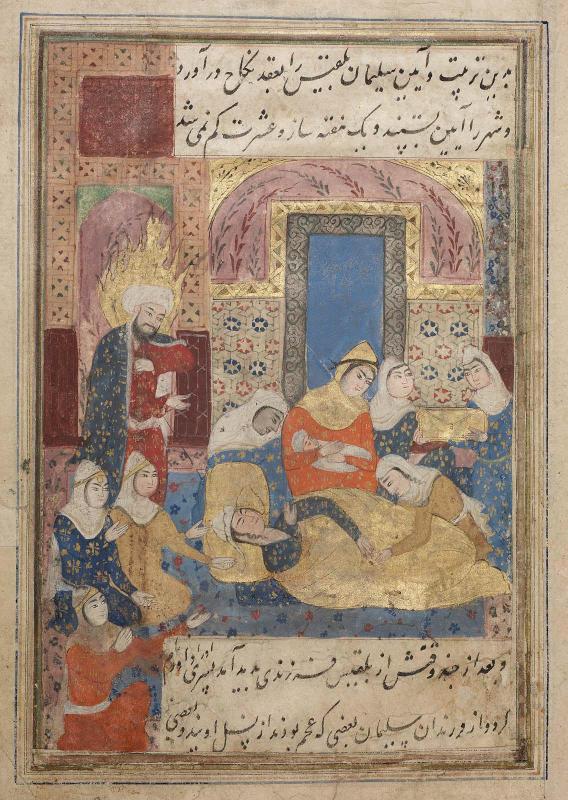 بدین ترتیب و آیین سلیمان بلقیس را بعقد نکاح در آورد
و شهر را آیین بستند و یک هفته ساز و عشرت کم نمی شد
و بعد از چند وقتش از بلقیس فرزندی پدید آمد پسری او را داود
و از فرزندان سلیمان بعضی که عجم بودند از نسل اویند و بعضی